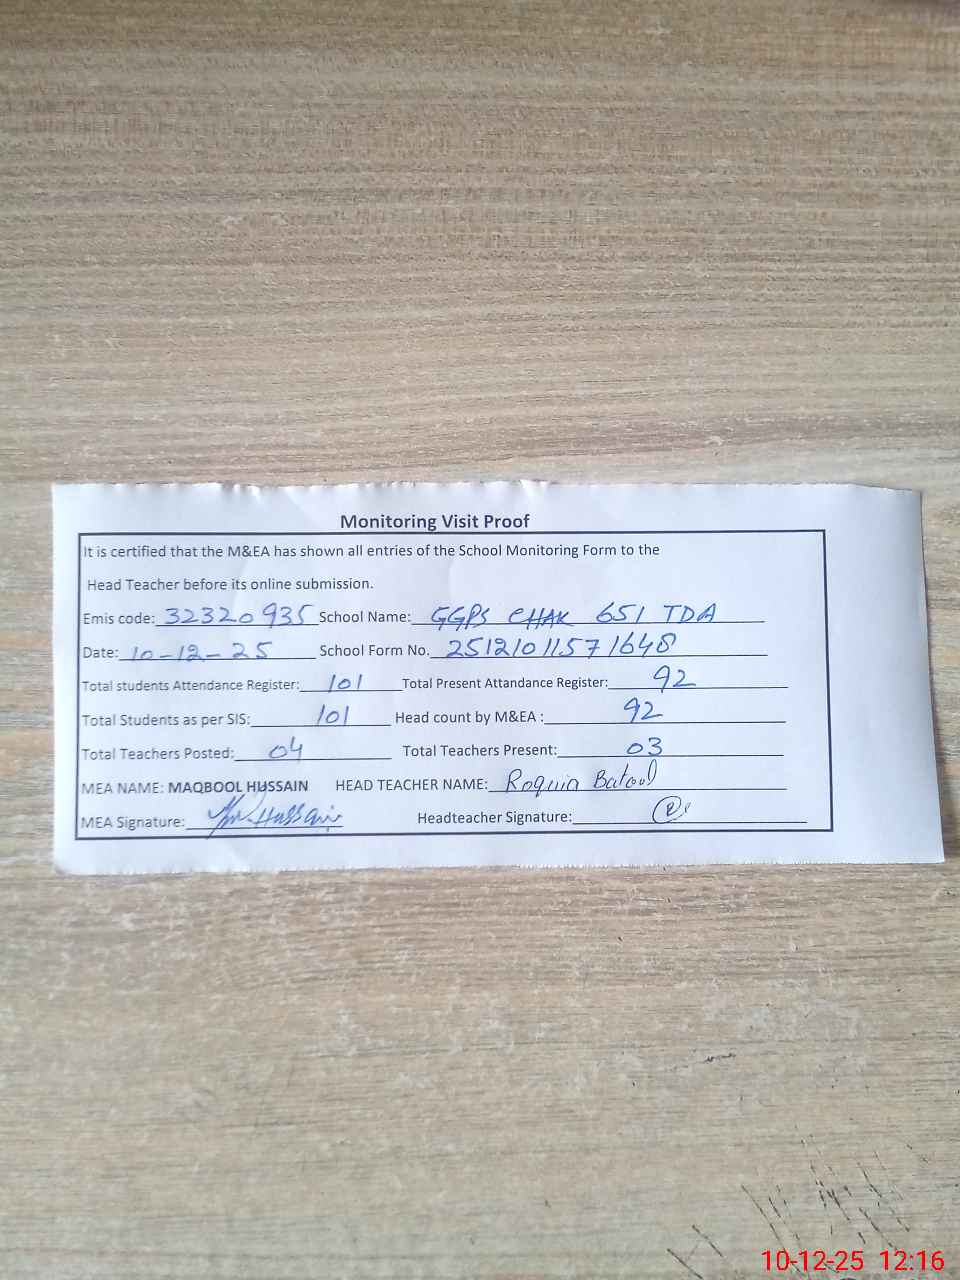 Monitoring Visit Proof
It is certified that the M&EA has shown all entries of the School Monitoring Form to the
Head Teacher before its online submission.
Emis code: 32320935 School Name: GGPS CHAK 651 TDA
Date: 10-12-25 School Form No. 2512101157 1648
Total students Attendance Register: 101 Total Present Attandance Register: 92
Total Students as per SIS: 101 Head count by M&EA : 92
Total Teachers Posted: 04 Total Teachers Present: 03
MEA NAME: MAQBOOL HUSSAIN HEAD TEACHER NAME: Roquia Batool
MEA Signature: Hussain Headteacher Signature:
10-12-25 12:16